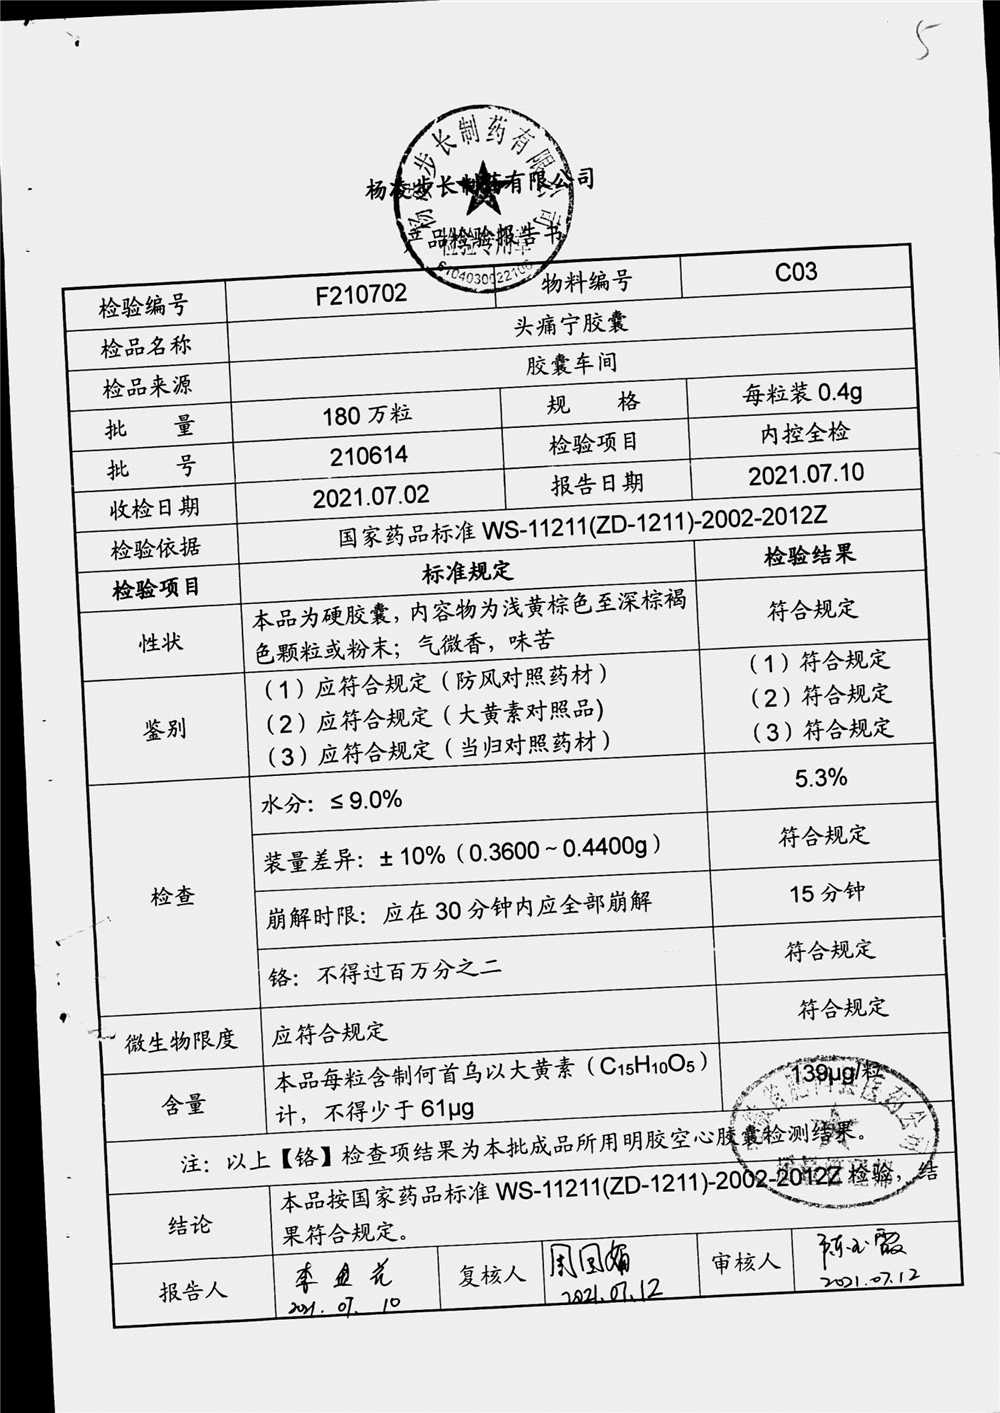 5
杨凌步长制药有限公司
产品检验报告书
杨凌步长制药有限公司
检验专用章
检验编号 F210702 物料编号 C03
检品名称 头痛宁胶囊
检品来源 胶囊车间
批 量 180 万粒 规 格 每粒装 0.4g
批 号 210614 检验项目 内控全检
收检日期 2021.07.02 报告日期 2021.07.10
检验依据 国家药品标准 WS-11211(ZD-1211)-2002-2012Z
检验项目 标准规定 检验结果
性状 本品为硬胶囊，内容物为浅黄棕色至深棕褐
色颗粒或粉末；气微香，味苦 符合规定
鉴别 （1）应符合规定（防风对照药材） （1）符合规定
（2）应符合规定（大黄素对照品) （2）符合规定
（3）应符合规定（当归对照药材） （3）符合规定
检查 水分：≤ 9.0% 5.3%
装量差异：± 10%（0.3600～0.4400g） 符合规定
崩解时限：应在 30 分钟内应全部崩解 15 分钟
铬：不得过百万分之二 符合规定
微生物限度 应符合规定 符合规定
含量 本品每粒含制何首乌以大黄素（C15H10O5）
计，不得少于 61μg 139μg/粒
注：以上【铬】检查项结果为本批成品所用明胶空心胶囊检测结果。
结论 本品按国家药品标准 WS-11211(ZD-1211)-2002-2012Z 检验，结
果符合规定。
报告人 2021.07.10 复核人 2021.07.12 审核人 2021.07.12